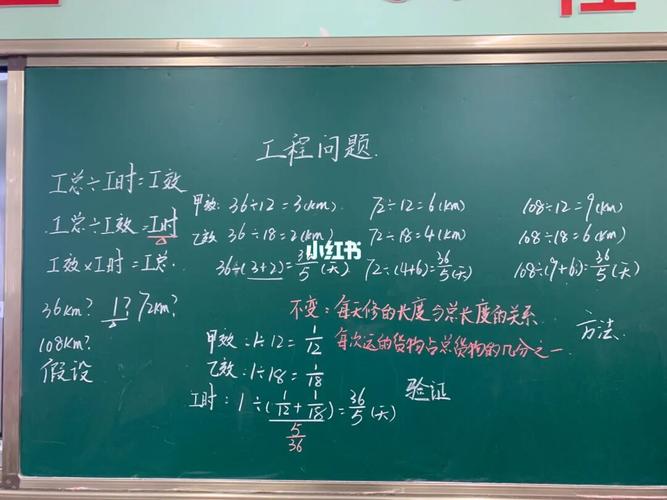 工程问题
工总÷工时=工效
工总÷工效=工时
工效×工时=工总
36km? 1? 72km?
108km?
假设
甲效: 36÷12=3(km) 72÷12=6(km) 108÷12=9(km)
乙效 36÷18=2(km) 72÷18=4(km) 108÷18=6(km)
36÷(3+2)=36/5(天) 72÷(4+6)=36/5(天) 108÷(9+6)=36/5(天)
小红书
不变:每天修的长度与总长度的关系
每次运的货物占总货物的几分之一
方法
甲效:1÷12=1/12
乙效:1÷18=1/18
工时:1÷(1/12+1/18)=36/5(天)
5/36
验证